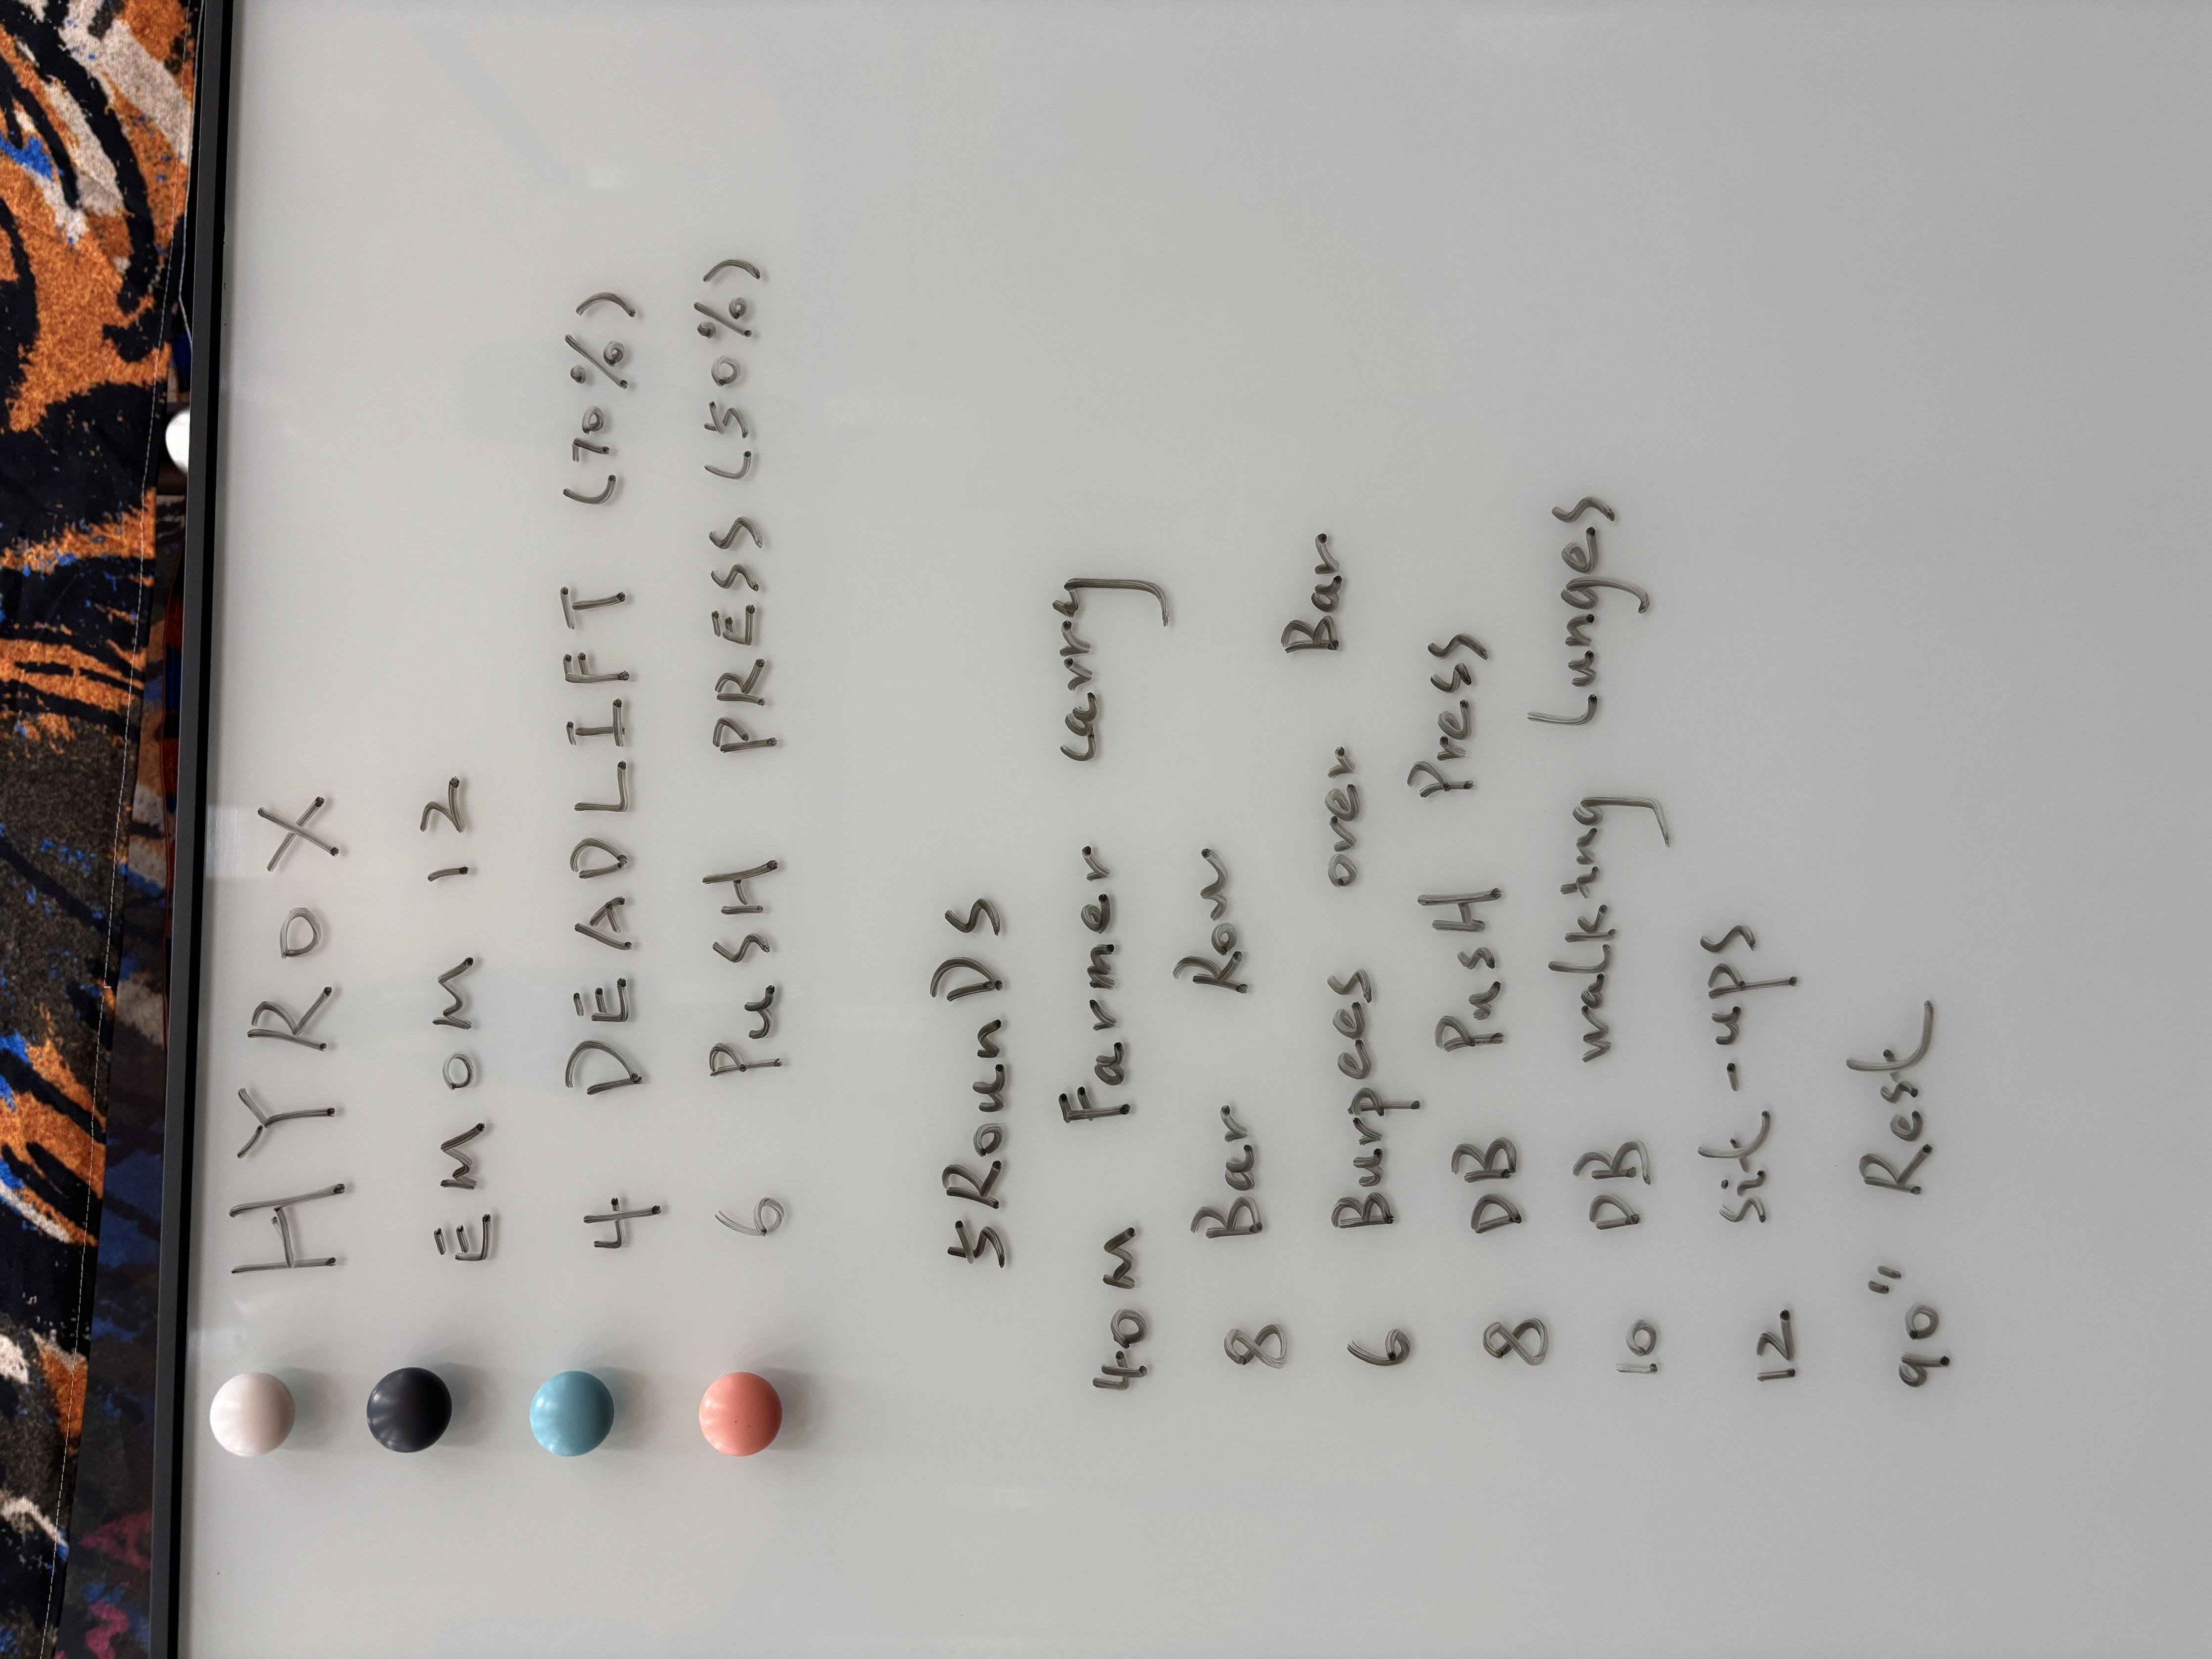 HYROX
EMOM 12
4 DEADLIFT (70%)
6 PUSH PRESS (50%)
5 RounDS
40m Farmer carry
8 Bar Row
6 Burpees over Bar
8 DB PusH Press
10 DB walking Lunges
12 Sit-ups
90" Rest